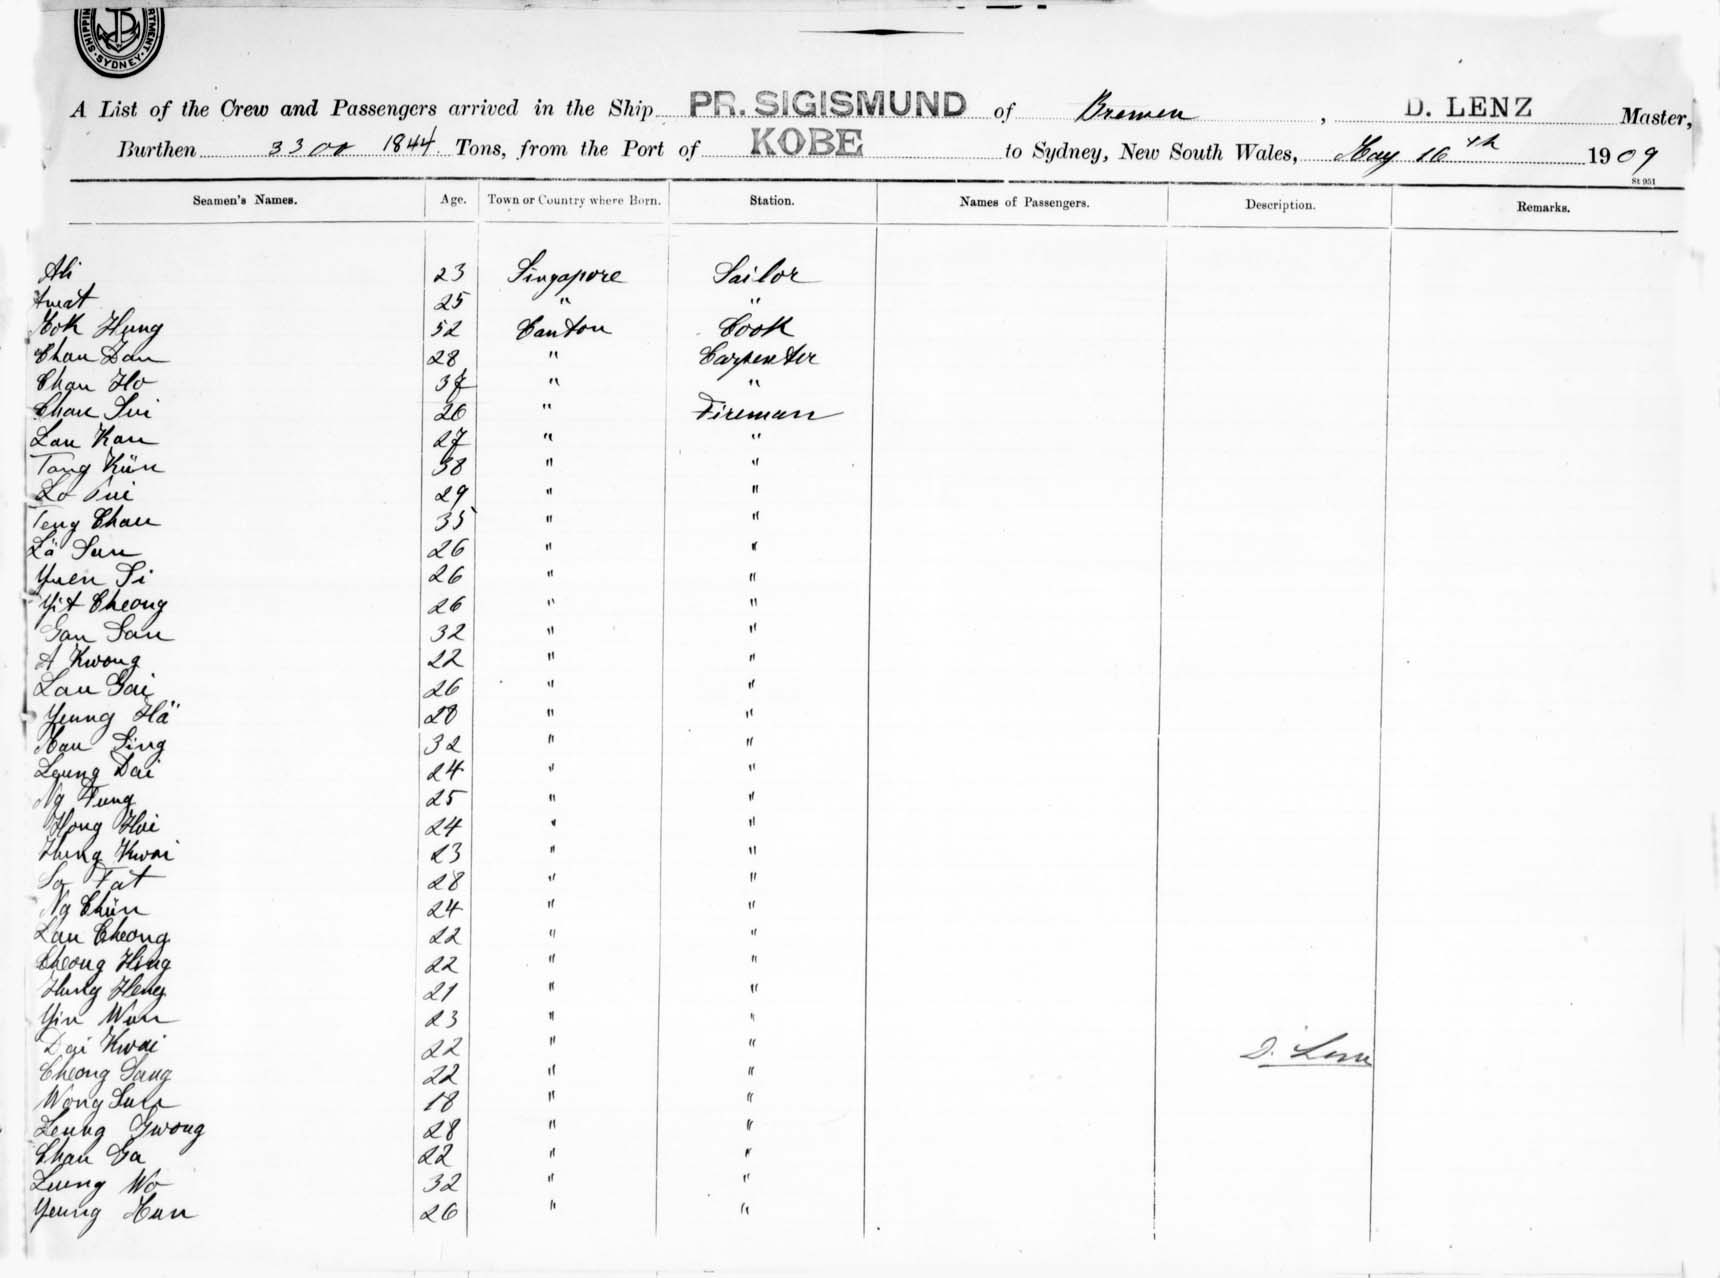 SHIPPING DEPARTMENT SYDNEY
A List of the Crew and Passengers arrived in the Ship PR. SIGISMUND of Bremen, D. LENZ Master,
Burthen 3300 1844 Tons, from the Port of KOBE to Sydney, New South Wales, May 16th 1909
St 951
Seamen's Names. Age. Town or Country where Born. Station. Names of Passengers. Description. Remarks.
Ali 23 Singapore Sailor
Amat 25 " "
Kok Hung 52 Canton Cook
Chan Dan 28 " Carpenter
Chan Ho 37 " "
Chan Sui 26 " Fireman
Lau Kan 27 " "
Tang Kün 38 " "
Lo 29 " "
Teng Chau 35 " "
Lä Sun 26 " "
Yuen Si 26 " "
Yit Cheong 26 " "
Gan San 32 " "
A Kwong 22 " "
Lau Gai 26 " "
Yeung Hä 28 " "
Sing 32 " "
Leung Dai 24 " "
Ng Fung 25 " "
Hong Hoi 24 " "
Hung Kwai 23 " "
So Fat 28 " "
Ng Chün 24 " "
Lau Cheong 22 " "
Cheong Hing 22 " "
Hung Heng 21 " "
Yin Wan 23 " "
Dai Kwai 22 " "
D. Lenz
Cheong Sang 22 " "
Wong Sun 18 " "
Leung Gwong 28 " "
Chan Ga 22 " "
Leung Wo 32 " "
Yeung Han 26 " "